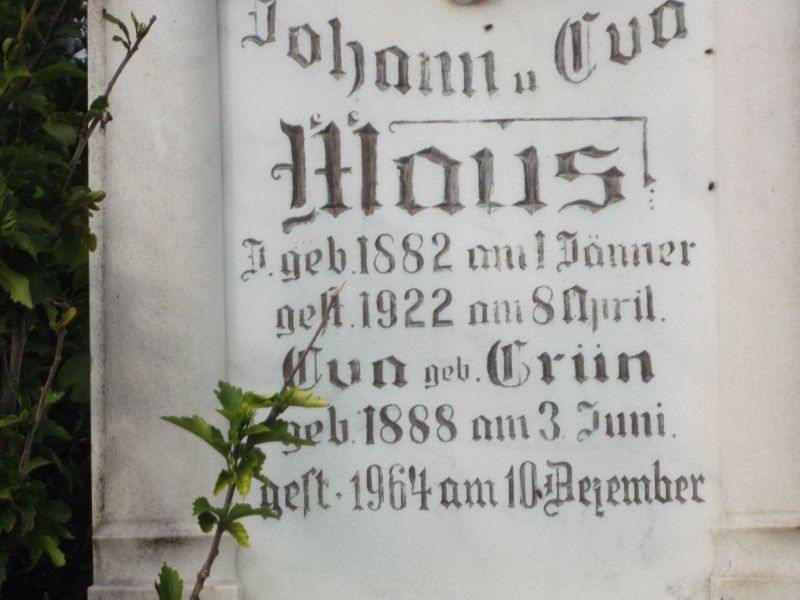 Johann u Eva
Maus
J. geb. 1882 am 1 Jänner
gest. 1922 am 8 April.
Eva geb. Grün
geb. 1888 am 3. Juni.
gest. 1964 am 10. Dezember